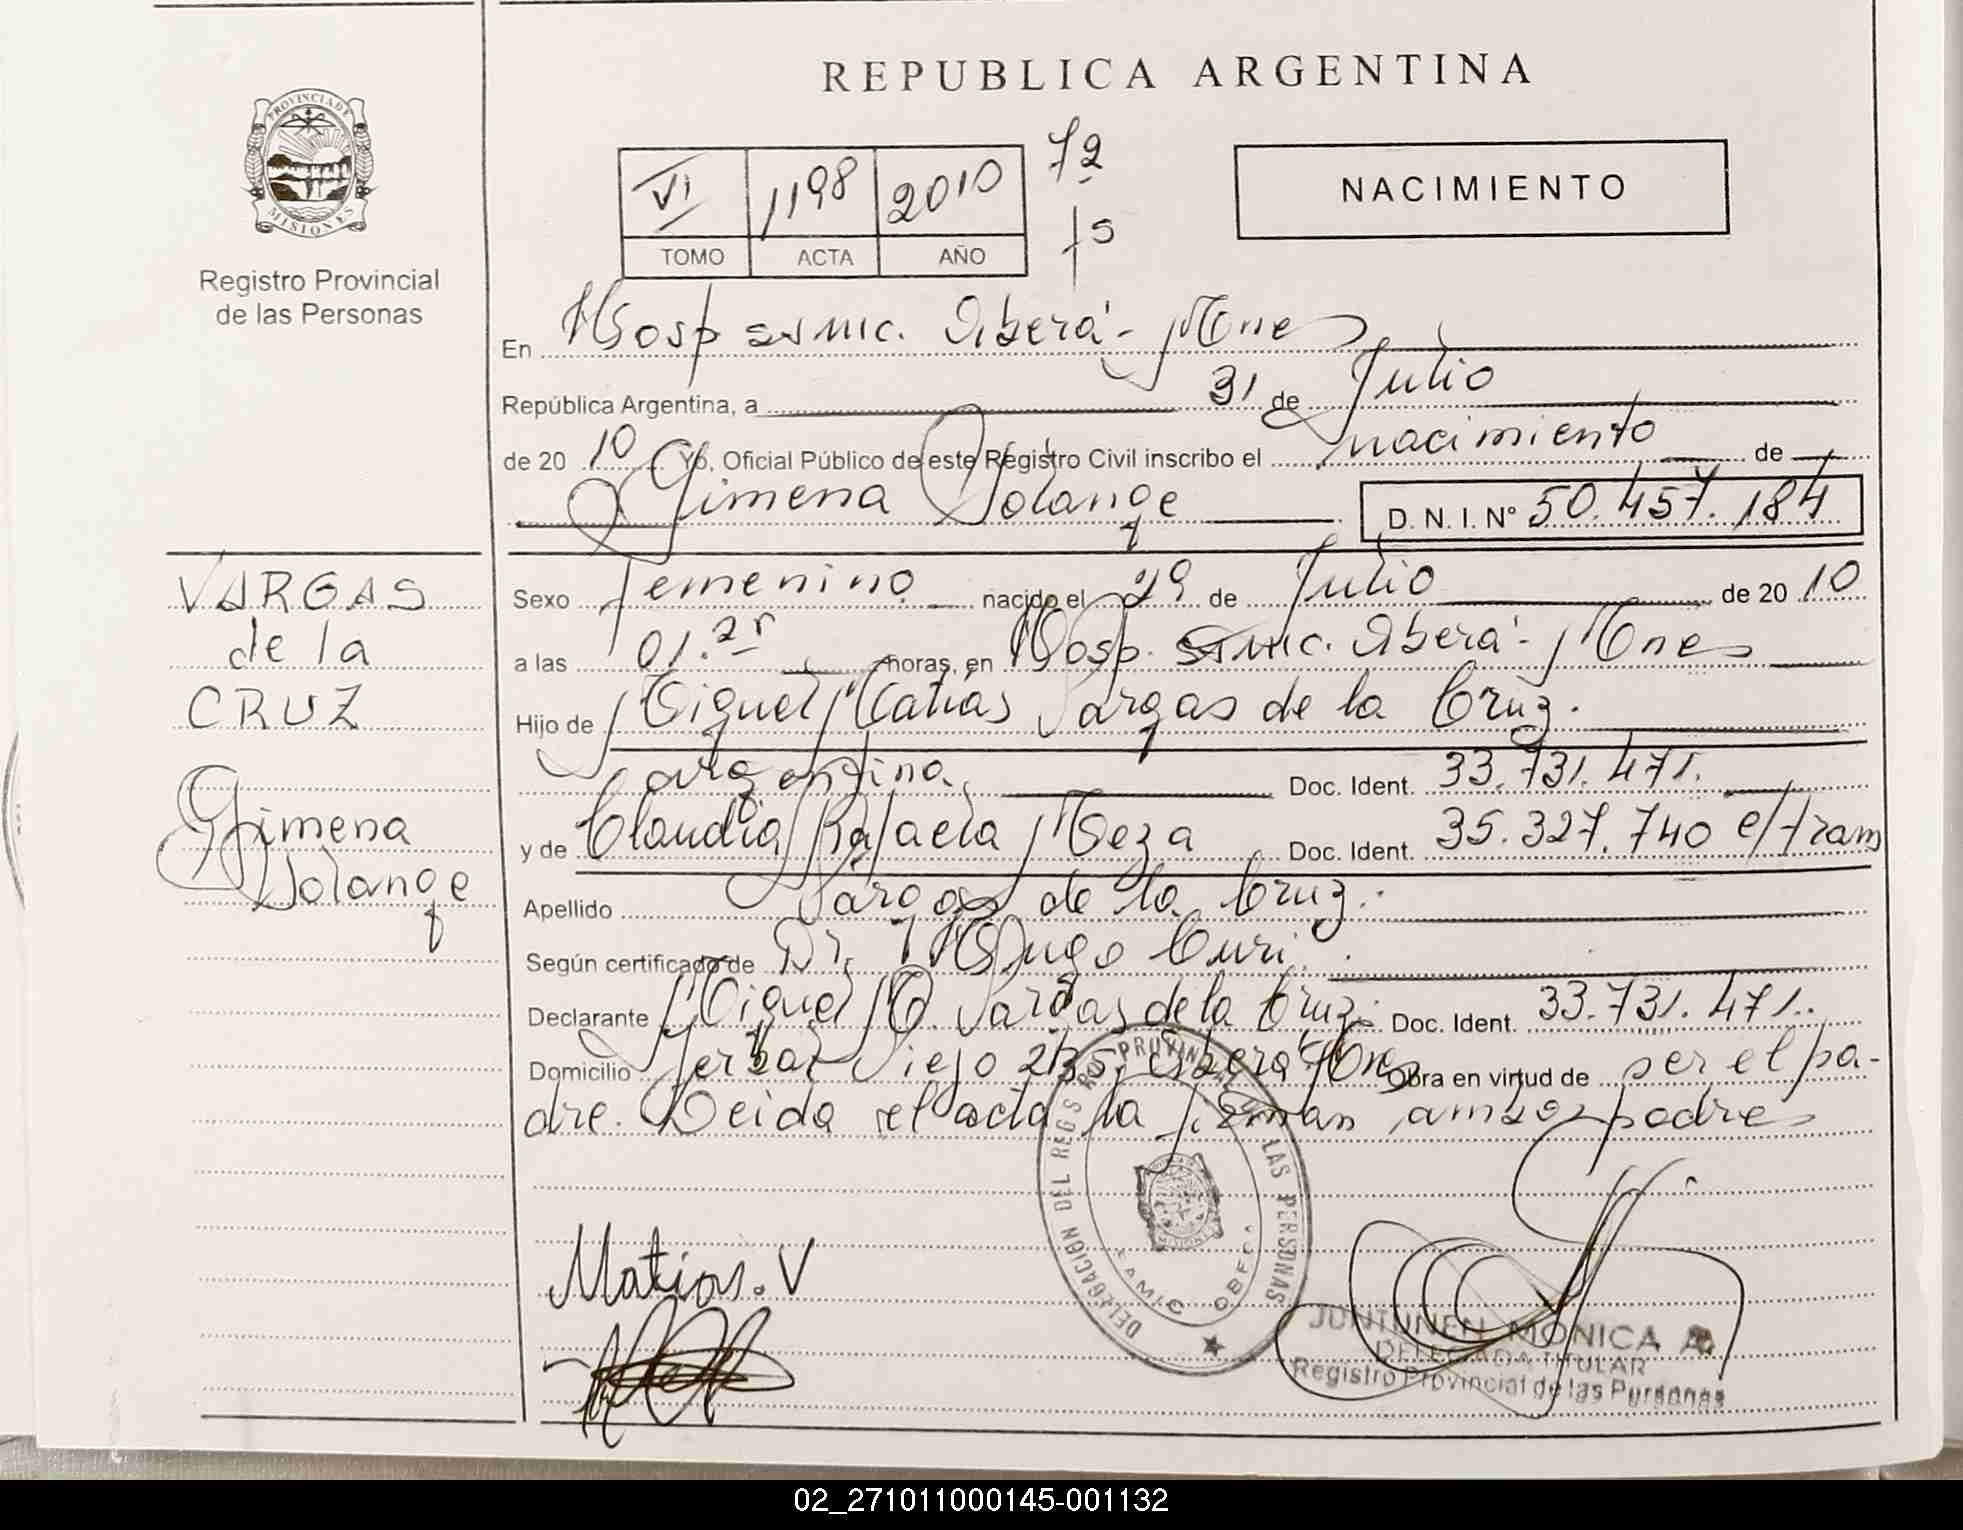 REPUBLICA ARGENTINA
PROVINCIA DE
MISIONES
Registro Provincial
de las Personas
VI 1198 2010 72
TOMO ACTA AÑO
NACIMIENTO
En Hosp samic. Oberá - Mnes
República Argentina, a 31 de Julio
de 20 10 Yo, Oficial Público de este Registro Civil inscribo el nacimiento de
Gimena Solange D. N. I. Nº 50.457.184
VARGAS
de la
CRUZ
Gimena
Solange
Sexo femenino nacido el 29 de Julio de 20 10
a las 01.25 horas, en Hosp. samic. Oberá - Mnes
Hijo de Miguel Matías Vargas de la Cruz.
argentina Doc. Ident. 33.731.471.
y de Claudia Rafaela Meza Doc. Ident. 35.327.740 e/tram
Apellido Vargas de la Cruz.
Según certificado de Dr. Hugo Curi.
Declarante Miguel M. Vargas de la Cruz. Doc. Ident. 33.731.471.
Domicilio Yerbal Viejo 2135, Oberá Mnes Obra en virtud de ser el pa-
dre. Leida el acta la firman ambos padres
Matias. V
DELEGACIÓN DEL REGISTRO PROVINCIAL DE LAS PERSONAS
SAMIC OBERA
JUNTUNEN MONICA A.
DELEGADA TITULAR
Registro Provincial de las Personas
02_271011000145-001132